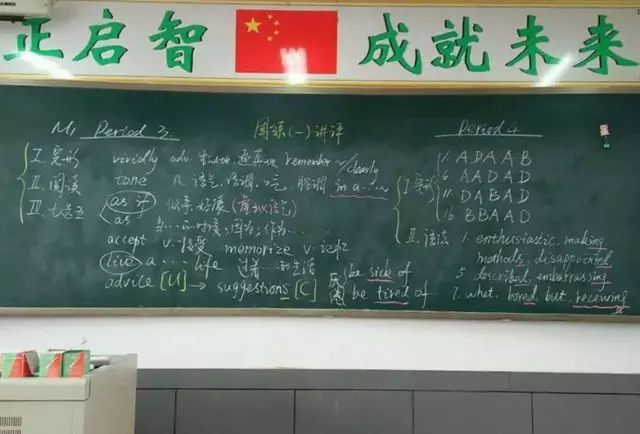 正启智 成就未来
M1 Period 3. 周练(一)讲评
I. 完形 vividly adv. remember clearly
II. 阅读 tone n. 语气,语调, 腔调 in a ... n
III. 七选五 as if 似乎,好像(虚拟语气)
as 当…的时候;因为;作为…
accept v. 接受 memorize v. 记忆
live a ... life 过着…的生活 be sick of
advice [U] → suggestions [C] be tired of
Period 4
I. 完形 1. A D A A B
6. A A D A D
11. D A B A D
16. B B A A D
II. 语法 1. enthusiastic, making
methods, disappointed
5. described, embarrassing
7. what, bored, but, receiving